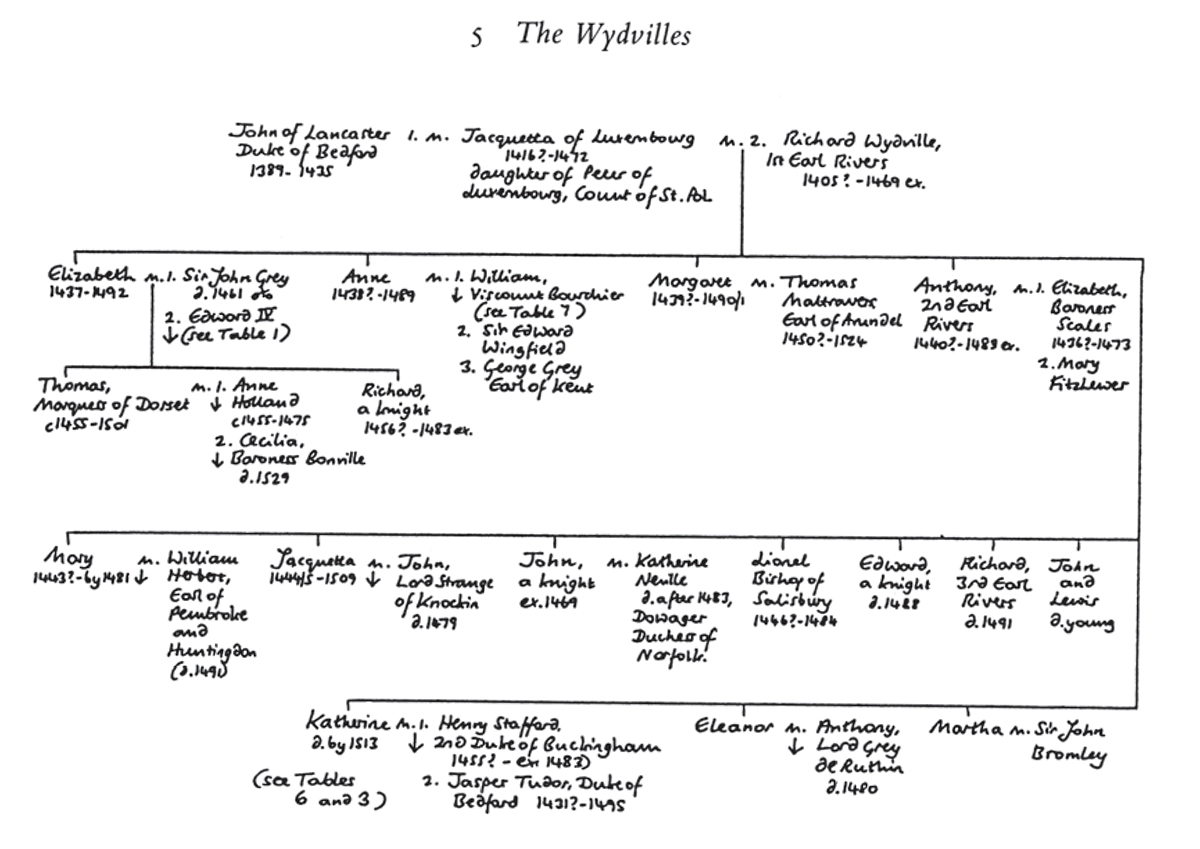 5 The Wydvilles
John of Lancaster
Duke of Bedford
1389-1435
1. m.
Jacquetta of Luxembourg
1416?-1472
daughter of Peter of
Luxembourg, Count of St. Pol
m. 2.
Richard Wydville,
1st Earl Rivers
1405?-1469 ex.
Elizabeth
1437-1492
m. 1. Sir John Grey
d.1461
2. Edward IV
↓ (see Table 1)
Anne
1438?-1489
m. 1. William,
↓ Viscount Bourchier
(see Table 7)
2. Sir Edward
Wingfield
3. George Grey
Earl of Kent
Margaret
1439?-1490/1
m. Thomas
Maltravers
Earl of Arundel
1450?-1524
Anthony,
2nd Earl
Rivers
1440?-1483 ex.
m. 1. Elizabeth,
Baroness
Scales
1436?-1473
2. Mary
Fitzlewer
Thomas,
Marquess of Dorset
c1455-1501
m. 1. Anne
↓ Holland
c1455-1475
2. Cecilia,
↓ Baroness Bonville
d.1529
Richard,
a knight
1456?-1483 ex.
Mary
1443?-by 1481
m. William
↓
Earl of
Pembroke
and
Huntingdon
(d.1491)
Jacquetta
1444/5-1509
m. John,
↓ Lord Strange
of Knockin
d.1479
John,
a knight
ex.1469
m. Katherine
Neville
d.after 1483,
Dowager
Duchess of
Norfolk.
Lionel
Bishop of
Salisbury
1446?-1484
Edward,
a knight
d.1488
Richard,
3rd Earl
Rivers
d.1491
John
and
Lewis
d.young
Katherine
d.by 1513
(see Tables
6 and 3)
m. 1. Henry Stafford,
↓ 2nd Duke of Buckingham
1455?-ex 1483)
2. Jasper Tudor, Duke of
Bedford 1431?-1495
Eleanor
m. Anthony,
↓ Lord Grey
de Ruthin
d.1480
Martha m. Sir John
Bromley